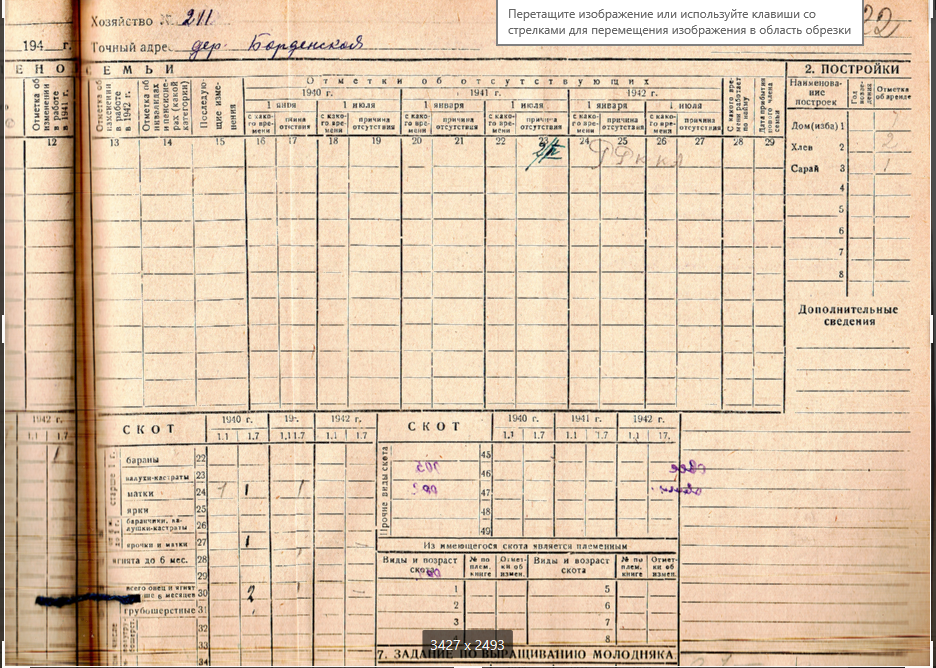 Хозяйство № 211
Перетащите изображение или используйте клавиши со
стрелками для перемещения изображения в область обрезки
22
194 г.
Точный адрес дер. Борденской
ЕНО СЕМЬИ
Отметки об отсутствующих
2. ПОСТРОЙКИ
Отметка об изменении в работе в 1941 г.
Отметка об изменении в работе в 1942 г.
Отметка об инвалидах и пенсионерах (какой категории)
Последующие изменения
1940 г.
1941 г.
1942 г.
1 июля
1 января
1 июля
1 января
1 июля
с какого времени
причина отсутствия
с какого времени
причина отсутствия
с какого времени
причина отсутствия
с какого времени
причина отсутствия
с какого времени
причина отсутствия
с какого времени
причина отсутствия
С какого времени работает по найму
Дата прибытия нового члена семьи
Наименование построек
Год возведения
Отметка об аренде
12 13 14 15 16 17 18 19 20 21 22 23 24 25 26 27 28 29
РРККА
Дом(изба) 1
Хлев 2 2
Сарай 3 1
4
5
6
7
8
Дополнительные
сведения
1942 г.
1.1 1.7
1
СКОТ
1940 г. 19 г. 1942 г.
1.1 1.7 1.1 1.7 1.1 1.7
бараны 22
валухи-кастраты 23
матки 24 1 1
ярки 25
баранчики, валушки-кастраты 26
ярочки и матки 27 1
ягнята до 6 мес. 28
29
всего овец и ягнят
6 месяцев 30 2
грубошерстные 31
32
33
34
СКОТ
1940 г. 1941 г. 1942 г.
1.1 1.7 1.1 1.7 1.1 17.
Прочие виды скота
45
46
47
48
49
Из имеющегося скота является племенным
Виды и возраст скота
№ по плем. книге
Отметки об измен.
Виды и возраст скота
№ по плем. книге
Отметки об измен.
1 5
2 6
3 7
8
3427 x 2493
7. ЗАДАНИЕ ПО ВЫРАЩИВАНИЮ МОЛОДНЯКА